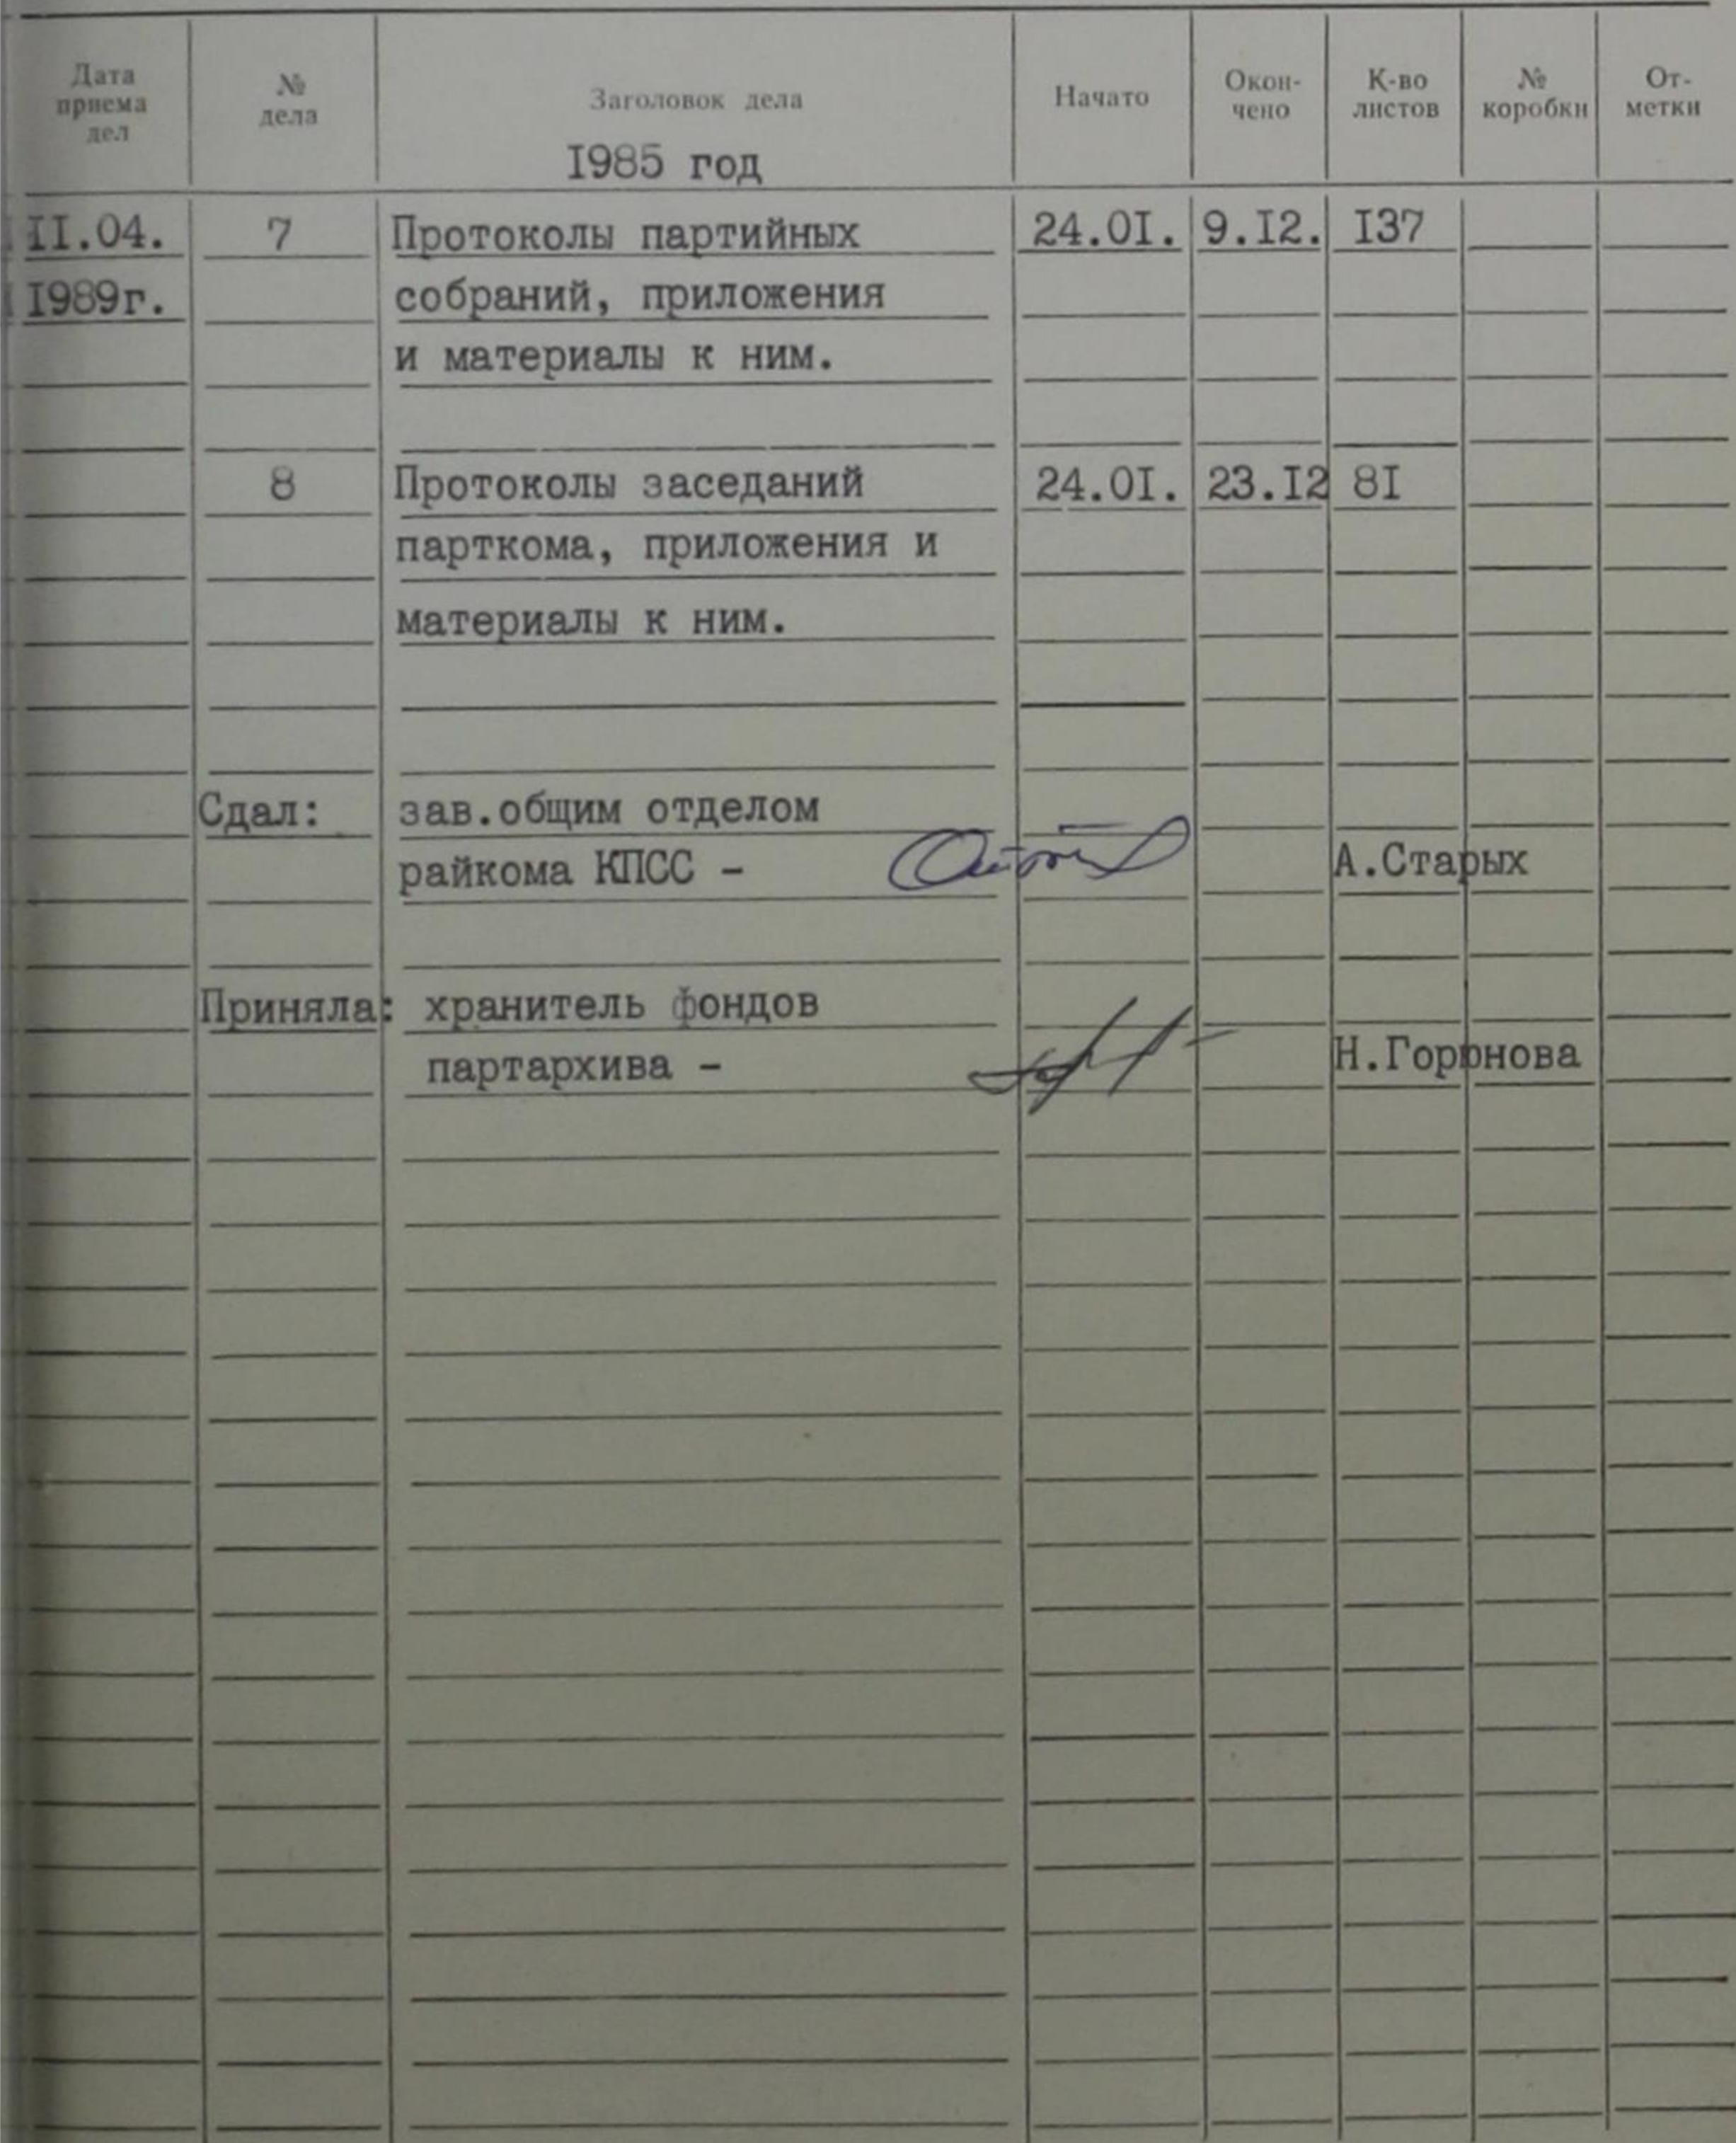 Дата приема дел № дела Заголовок дела Начато Окон- чено К-во листов № коробки От- метки
I985 год
II.04. 7 Протоколы партийных 24.0I. 9.I2. I37
I989г. собраний, приложения
и материалы к ним.
8 Протоколы заседаний 24.0I. 23.I2 8I
парткома, приложения и
материалы к ним.
Сдал: зав.общим отделом
райкома КПСС - А.Старых
Приняла: хранитель фондов
партархива - Н.Горюнова